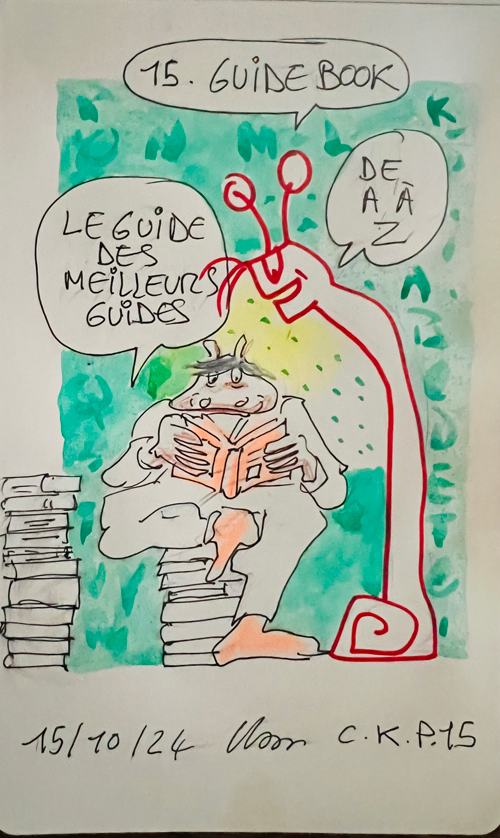 15. GUIDEBOOK
DE
A À
Z
LE GUIDE
DES
MEILLEURS
GUIDES
15/10/24 C.K.P.15